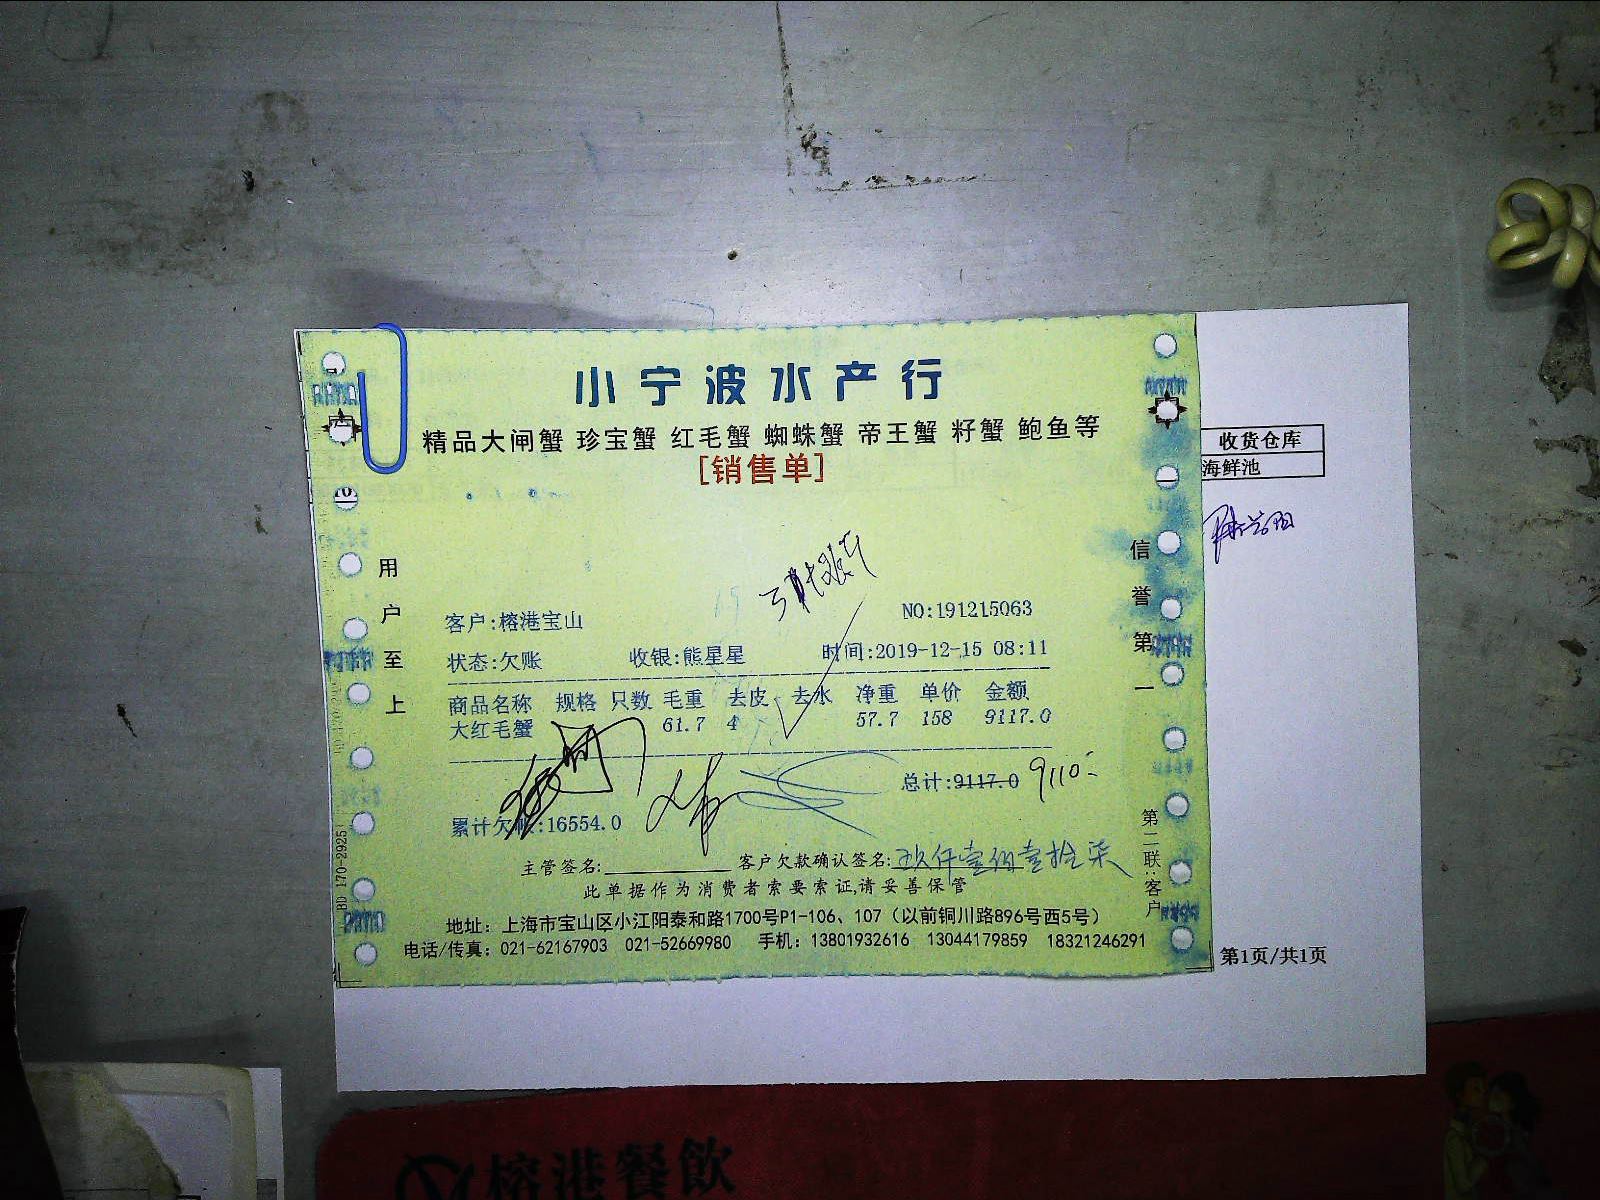 小宁波水产行
精品大闸蟹 珍宝蟹 红毛蟹 蜘蛛蟹 帝王蟹 籽蟹 鲍鱼等
[销售单]
收货仓库
海鲜池
用户至上
信誉第一
客户:榕港宝山
NO:191215063
状态:欠账 收银:熊星星 时间:2019-12-15 08:11
商品名称 规格 只数 毛重 去皮 去水 净重 单价 金额
大红毛蟹 61.7 4 57.7 158 9117.0
总计:9117.0 9110-
累计欠账:16554.0
主管签名: 客户欠款确认签名:玖仟壹佰壹拾柒
此单据作为消费者索要索证,请妥善保管
地址：上海市宝山区小江阳泰和路1700号P1-106、107（以前铜川路896号西5号）
电话/传真：021-62167903 021-52669980 手机：13801932616 13044179859 18321246291
第二联:客户
BD 170-2925
第1页/共1页
榕港餐飲